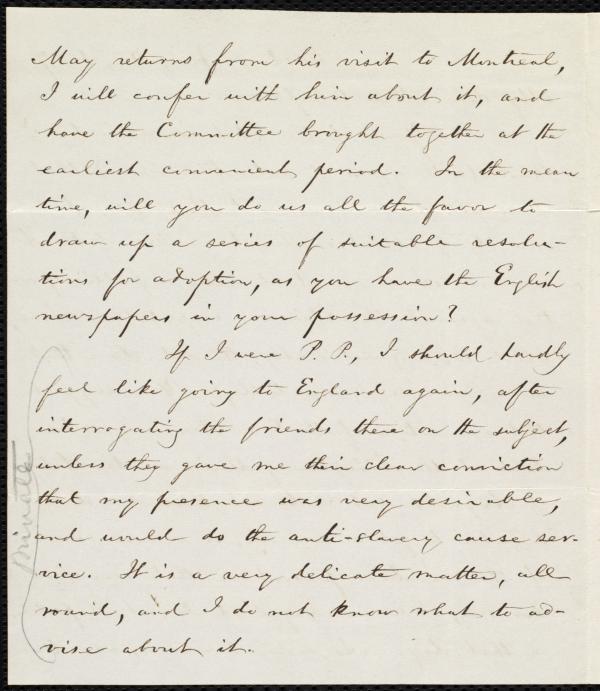 May returns from his visit to Montreal,
I will confer with him about it, and
have the Committee brought together at the
earliest convenient period. In the mean
time, will you do us all the favor to
draw up a series of suitable resolu-
tions for adoption, as you have the English
newspapers in your possession?
If I were P. P., I should hardly
feel like going to England again, after
interrogating the friends there on the subject,
unless they gave me their clear conviction
that my presence was very desirable,
and would do the anti-slavery cause ser-
vice. It is a very delicate matter, all
round, and I do not know what to ad-
vise about it.
Private